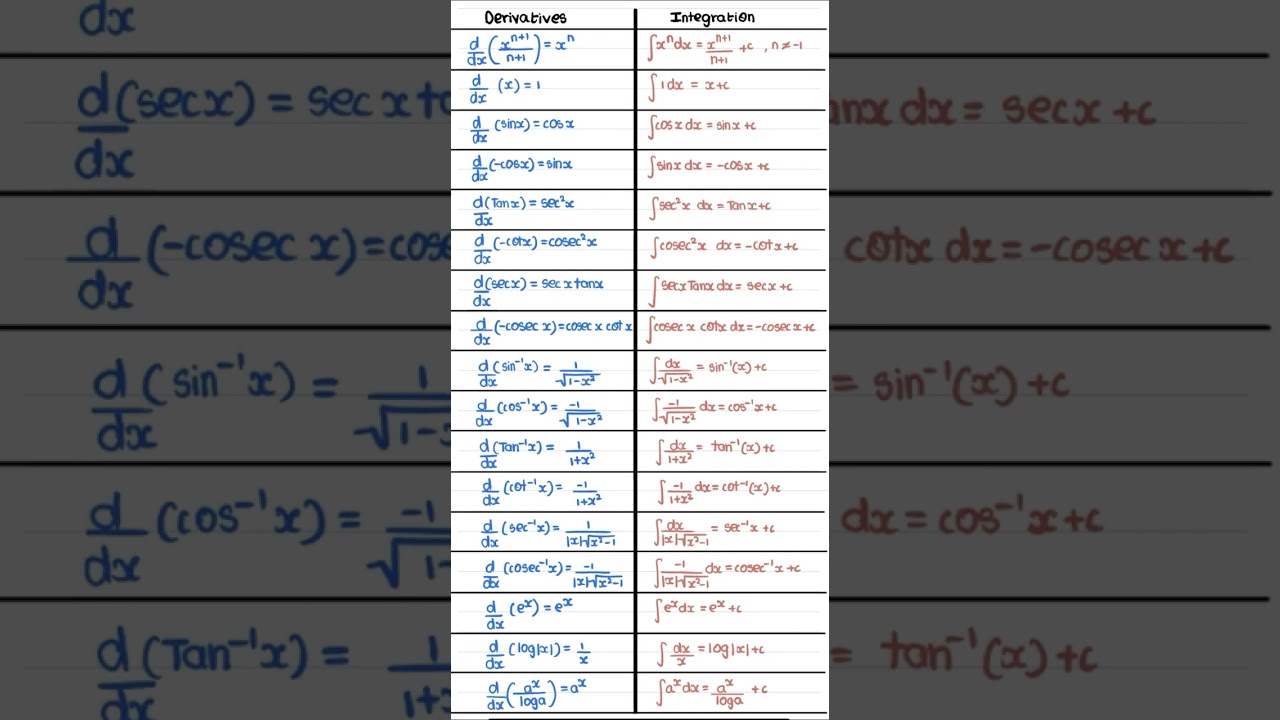 Derivatives | Integration
d/dx (xⁿ⁺¹/n+1) = xⁿ | ∫xⁿdx = xⁿ⁺¹/n+1 +c , n ≠ -1
d/dx (x) = 1 | ∫1dx = x+c
d/dx (sinx) = cosx | ∫cosx dx = sinx +c
d/dx (-cosx) = sinx | ∫sinx dx = -cosx +c
d/dx (Tanx) = sec²x | ∫sec²x dx = Tanx+c
d/dx (-cotx) = cosec²x | ∫cosec²x dx = -cotx+c
d/dx (secx) = secx tanx | ∫secxTanx dx = secx+c
d/dx (-cosec x) = cosec x cot x | ∫cosec x cotx dx = -cosecx+c
d/dx (sin⁻¹x) = 1/√1-x² | ∫dx/√1-x² = sin⁻¹(x)+c
d/dx (cos⁻¹x) = -1/√1-x² | ∫-1/√1-x² dx = cos⁻¹x+c
d/dx (Tan⁻¹x) = 1/1+x² | ∫dx/1+x² = tan⁻¹(x)+c
d/dx (cot⁻¹x) = -1/1+x² | ∫-1/1+x² dx = cot⁻¹(x)+c
d/dx (sec⁻¹x) = 1/|x|√x²-1 | ∫dx/|x|√x²-1 = sec⁻¹x +c
d/dx (cosec⁻¹x) = -1/|x|√x²-1 | ∫-1/|x|√x²-1 dx = cosec⁻¹x+c
d/dx (eˣ) = eˣ | ∫eˣdx = eˣ+c
d/dx (log|x|) = 1/x | ∫dx/x = log|x|+c
d/dx (aˣ/loga) = aˣ | ∫aˣdx = aˣ/loga +c